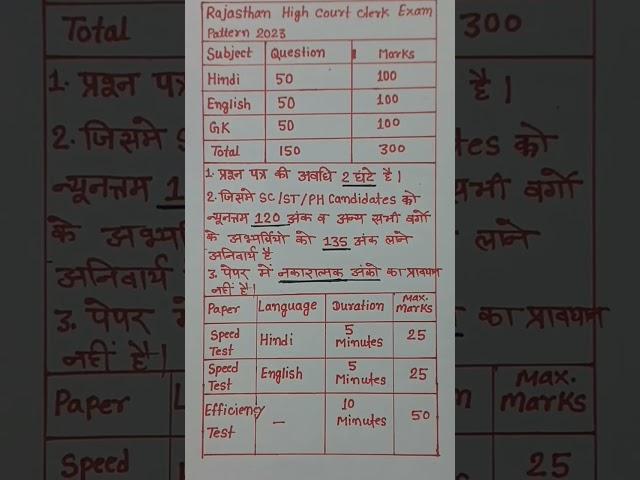 Rajasthan High Court Clerk Exam
Pattern 2023
Subject Question Marks
Hindi 50 100
English 50 100
GK 50 100
Total 150 300
1. प्रश्न पत्र की अवधि 2 घंटे है।
2. जिसमे SC/ST/PH Candidates को
न्यूनत्तम 120 अंक व अन्य सभी वर्गो
के अभ्यर्थियो को 135 अंक लाने
अनिवार्य है
3. पेपर में नकारात्मक अंको का प्रावधान
नहीं है।
Paper Language Duration Max. Marks
Speed Test Hindi 5 Minutes 25
Speed Test English 5 Minutes 25
Efficiency Test — 10 Minutes 50